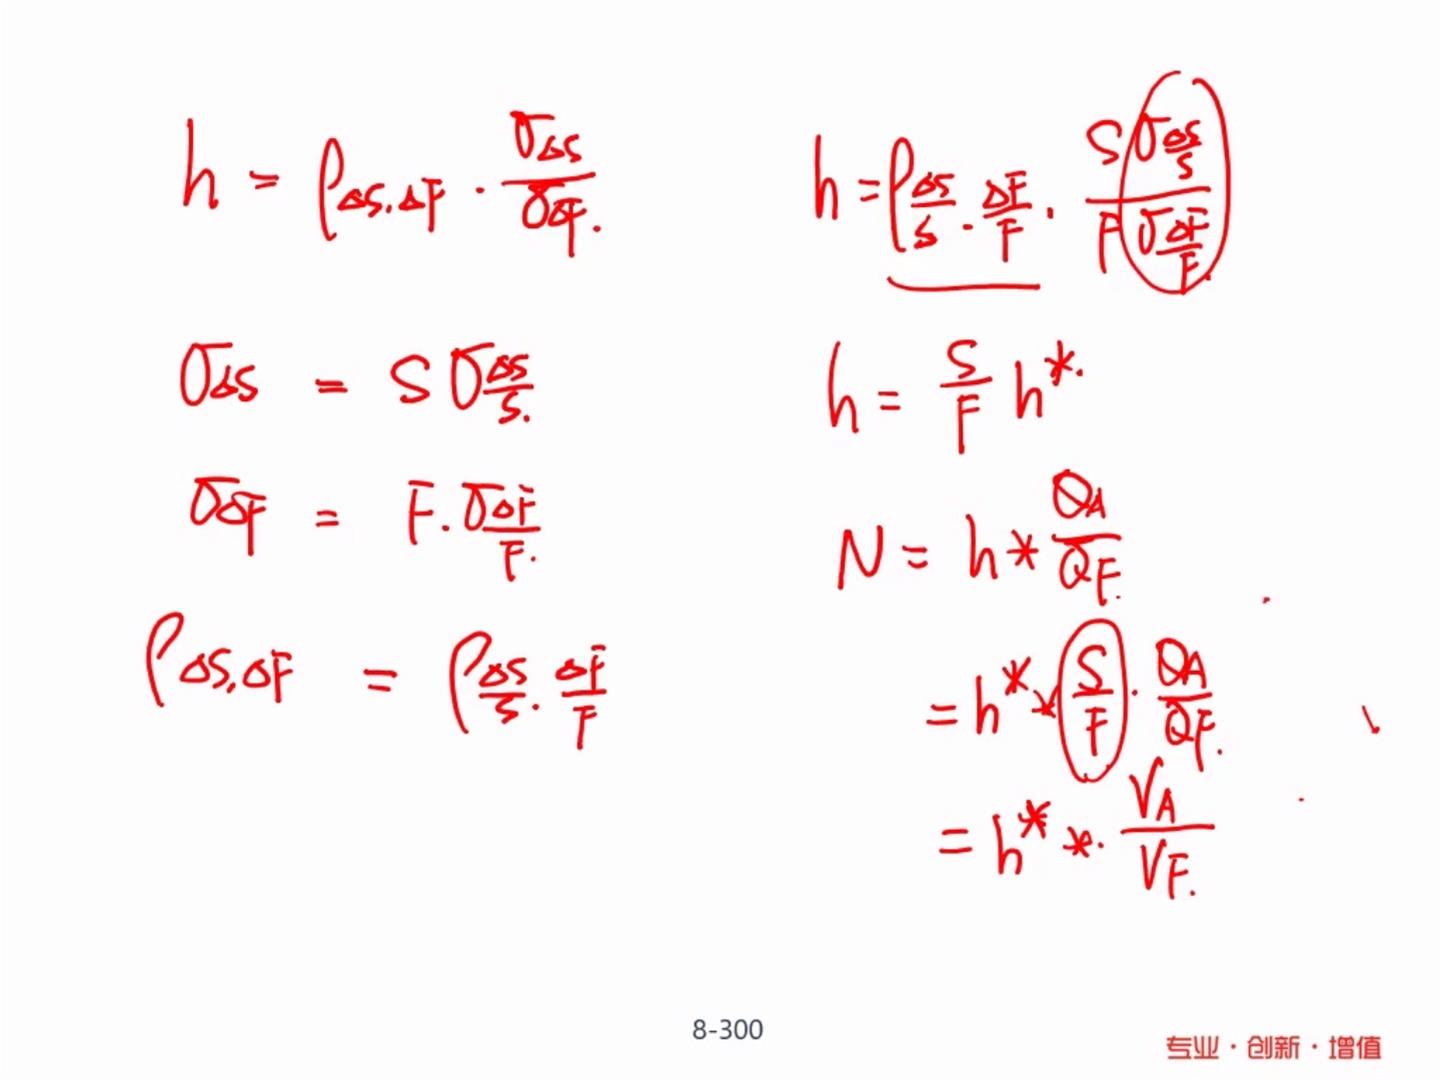 h = ρ_{ΔS,ΔF} · \frac{σ_{ΔS}}{σ_{ΔF}}.
σ_{ΔS} = S σ_{\frac{ΔS}{S}}.
σ_{ΔF} = F · σ_{\frac{ΔF}{F}}.
ρ_{ΔS,ΔF} = ρ_{\frac{ΔS}{S} · \frac{ΔF}{F}}
h = ρ_{\frac{ΔS}{S} · \frac{ΔF}{F}} · \frac{S σ_{\frac{ΔS}{S}}}{F σ_{\frac{ΔF}{F}}}.
h = \frac{S}{F} h*.
N = h * \frac{Q_A}{Q_F}.
= h* * \frac{S}{F} · \frac{Q_A}{Q_F}.
= h* * · \frac{V_A}{V_F}.
8-300
专业·创新·增值